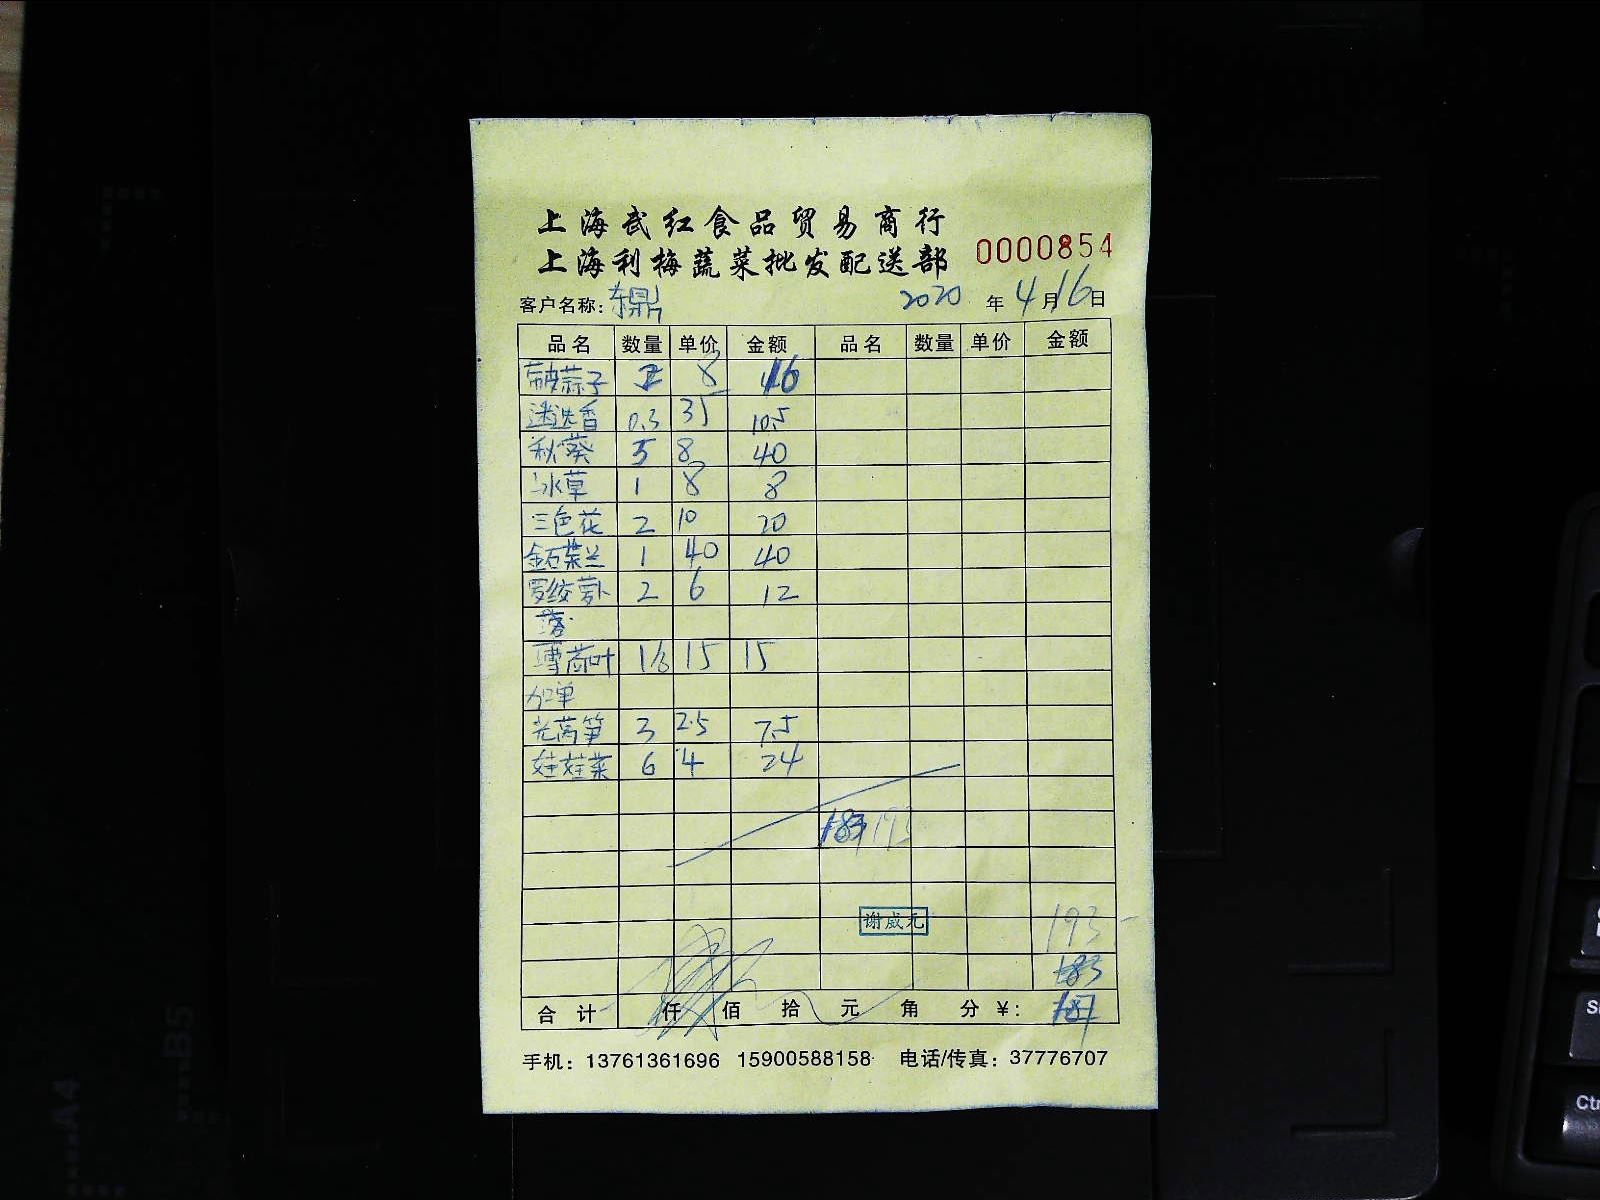 上海武红食品贸易商行
上海利梅蔬菜批发配送部
0000854
客户名称：东鼎 2020年4月16日
品名 数量 单价 金额 品名 数量 单价 金额
带皮蒜子 2 8 16
迷迭香 0.3 35 10.5
秋葵 5 8 40
冰草 1 8 8
三色花 2 10 20
金石斛兰 1 40 40
罗绞萝卜 2 6 12
落
薄荷叶 1/6 15 15
加单
光莴笋 3 2.5 7.5
娃娃菜 6 4 24
183 193
谢成元
193
183
合计 仟 佰 拾 元 角 分 ¥： 187
手机：13761361696 15900588158 电话/传真：37776707
A4
B5
Ctr